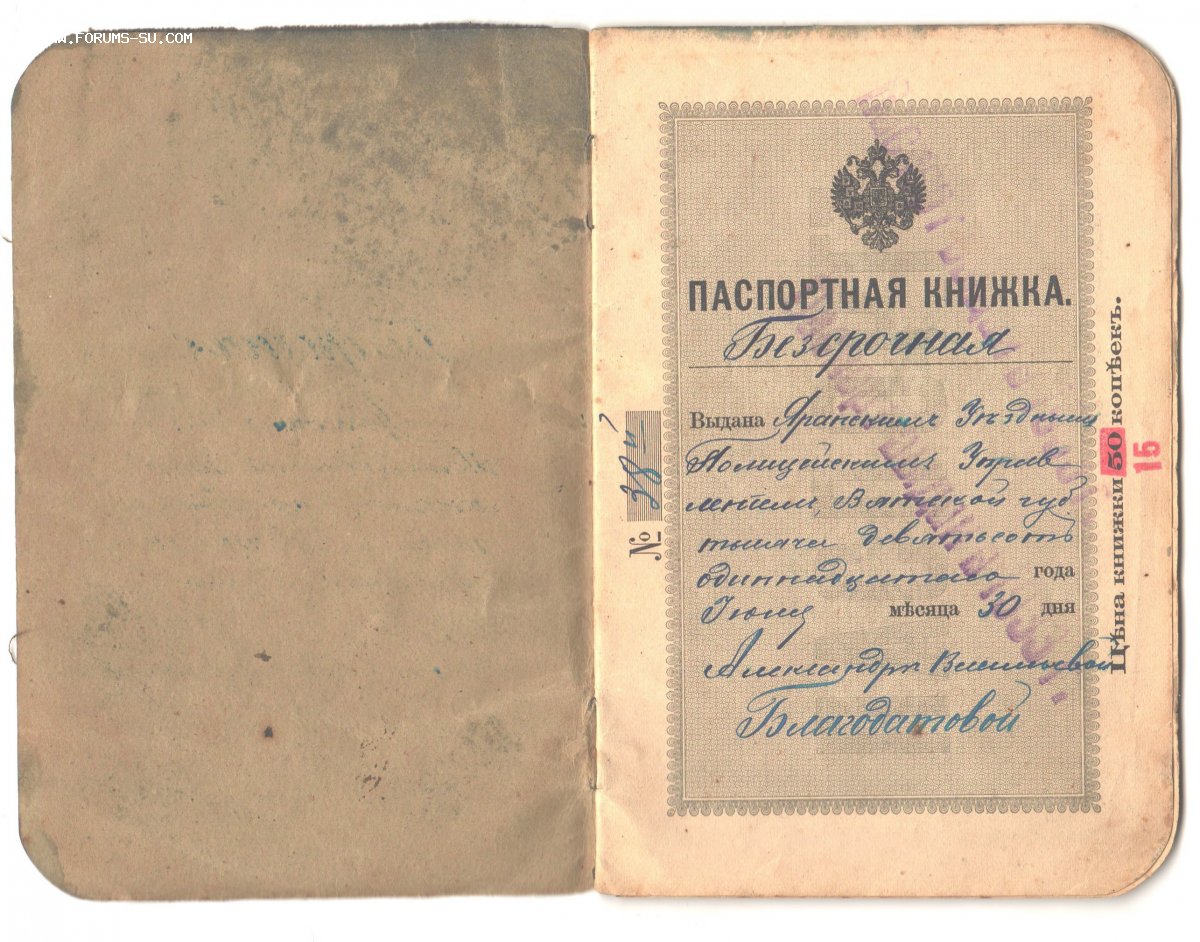 WWW.FORUMS-SU.COM
ПАСПОРТНАЯ КНИЖКА.
Безсрочная
Выдана Яранскимъ Уѣзднымъ
Полицейскимъ Управ
леніемъ, Вятской губ
тысяча девятьсотъ
одиннадцатаго года
Іюня мѣсяца 30 дня
Александрѣ Васильевой
Благодатовой
№ 38
Цѣна книжки 50 копѣекъ.
15